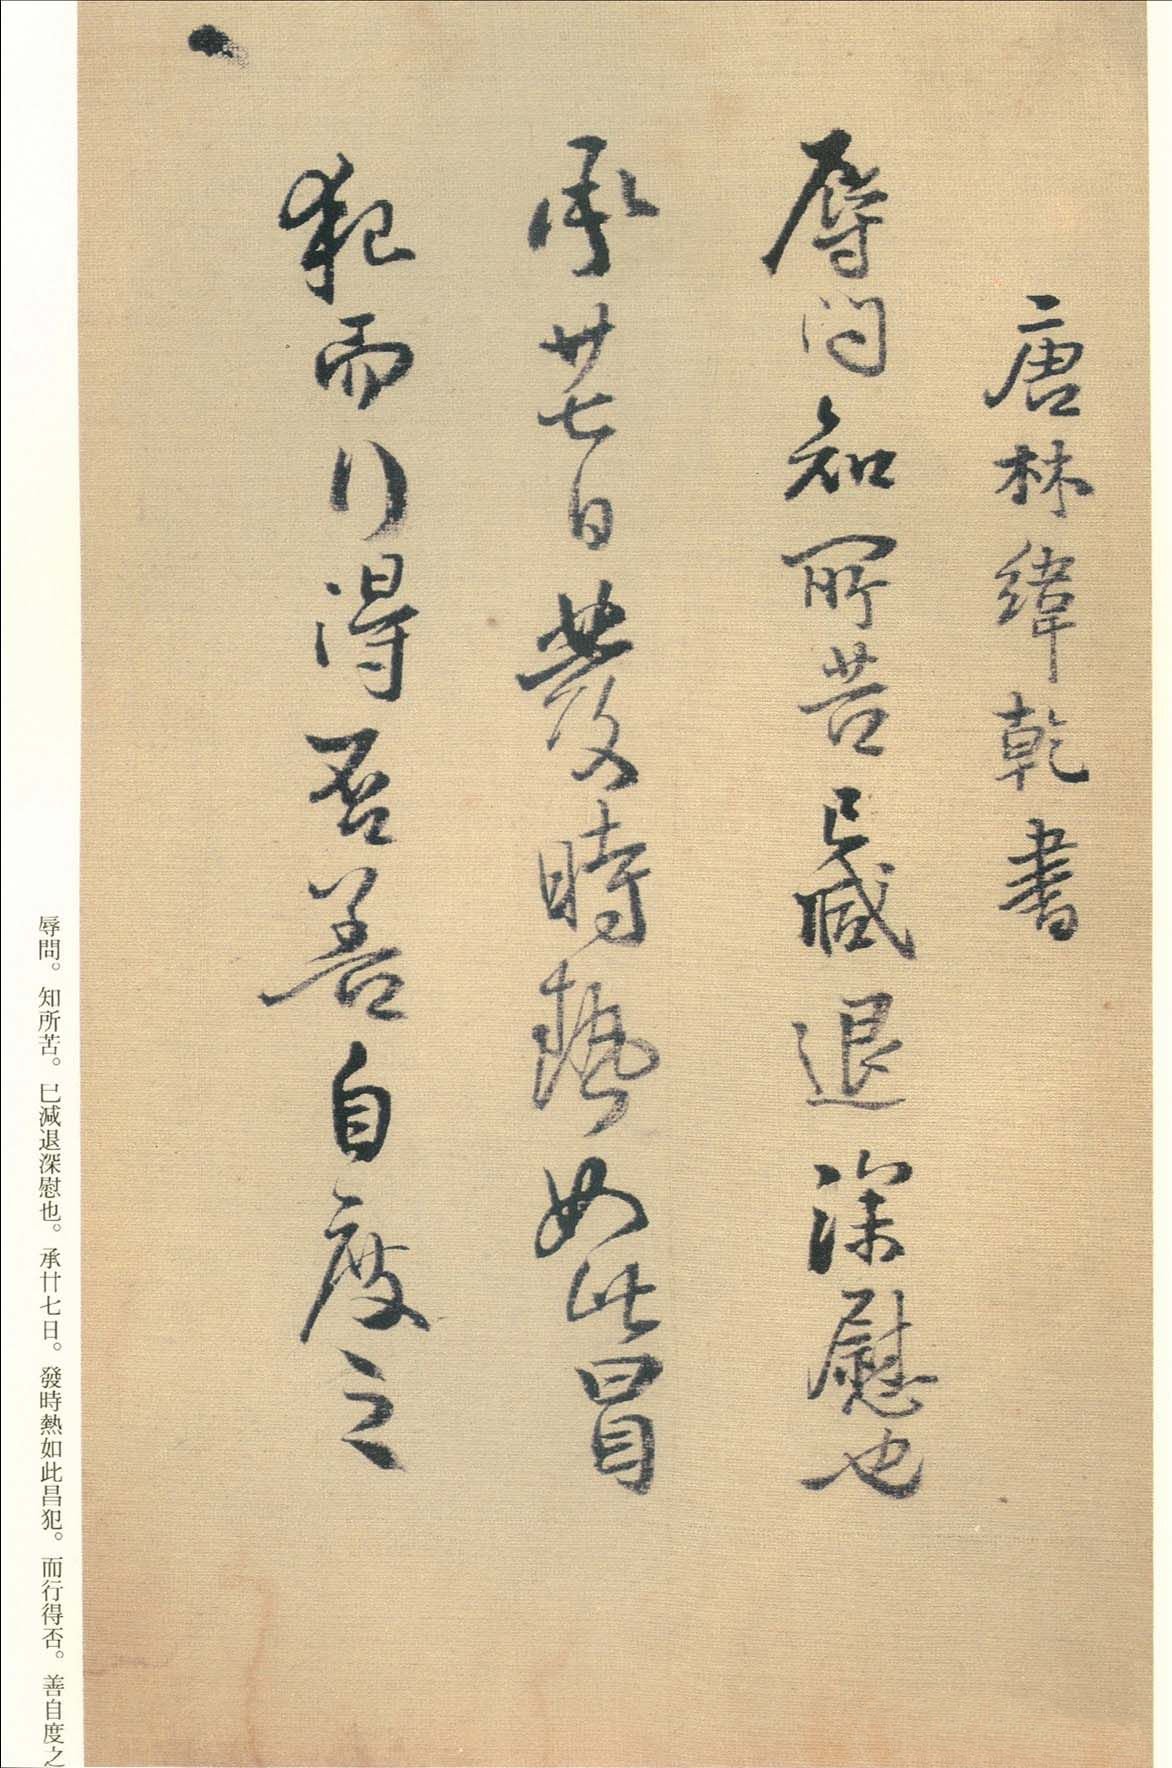 唐林緯乾書
辱問知所苦已減退深慰也
承廿七日發時熱如此冒
犯而行得否善自度之
辱問。知所苦。巳減退深慰也。承廿七日。發時熱如此昌犯。而行得否。善自度之